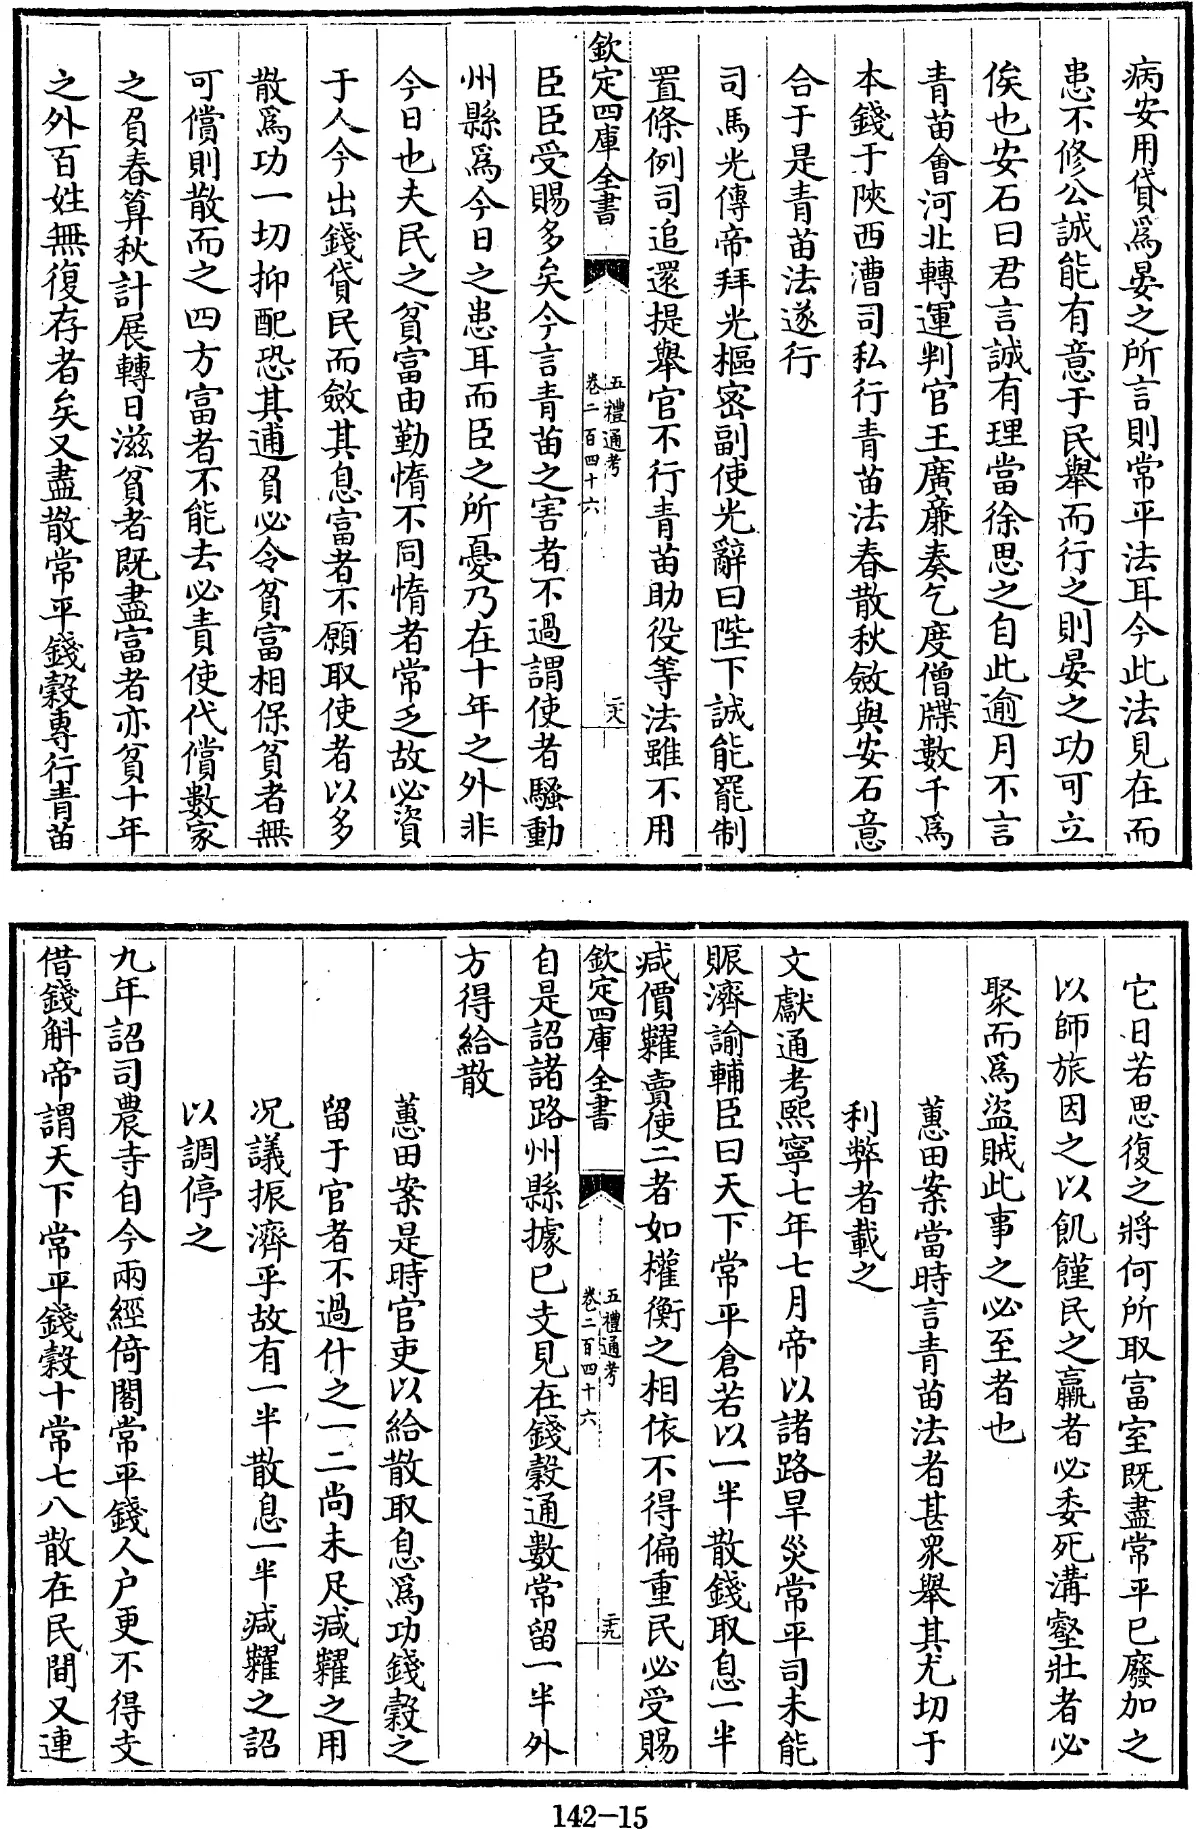 病安用貸爲晏之所言則常平法耳今此法見在而
患不修公誠能有意于民舉而行之則晏之功可立
俟也安石曰君言誠有理當徐思之自此逾月不言
青苗會河北轉運判官王廣廉奏乞度僧牒數千爲
本錢于陝西漕司私行青苗法春散秋斂與安石意
合于是青苗法遂行
司馬光傳帝拜光樞密副使光辭曰陛下誠能罷制
置條例司追還提舉官不行青苗助役等法雖不用
欽定四庫全書
五禮通考
卷二百四十六
二八
臣臣受賜多矣今言青苗之害者不過謂使者騷動
州縣爲今日之患耳而臣之所憂乃在十年之外非
今日也夫民之貧富由勤惰不同惰者常乏故必資
于人今出錢貸民而斂其息富者不願取使者以多
散爲功一切抑配恐其逋負必令貧富相保貧者無
可償則散而之四方富者不能去必責使代償數家
之負春算秋計展轉日滋貧者既盡富者亦貧十年
之外百姓無復存者矣又盡散常平錢穀專行青苗
它日若思復之將何所取富室既盡常平已廢加之
以師旅因之以飢饉民之羸者必委死溝壑壯者必
聚而爲盜賊此事之必至者也
蕙田案當時言青苗法者甚衆舉其尤切于
利弊者載之
文獻通考熙寧七年七月帝以諸路旱災常平司未能
賑濟諭輔臣曰天下常平倉若以一半散錢取息一半
减價糶賣使二者如權衡之相依不得偏重民必受賜
欽定四庫全書
五禮通考
卷二百四十六
二九
自是詔諸路州縣據已支見在錢穀通數常留一半外
方得給散
蕙田案是時官吏以給散取息爲功錢穀之
留于官者不過什之一二尚未足减糶之用
况議振濟乎故有一半散息一半减糶之詔
以調停之
九年詔司農寺自今兩經倚閣常平錢人户更不得支
借錢斛帝謂天下常平錢穀十常七八散在民間又連
142-15